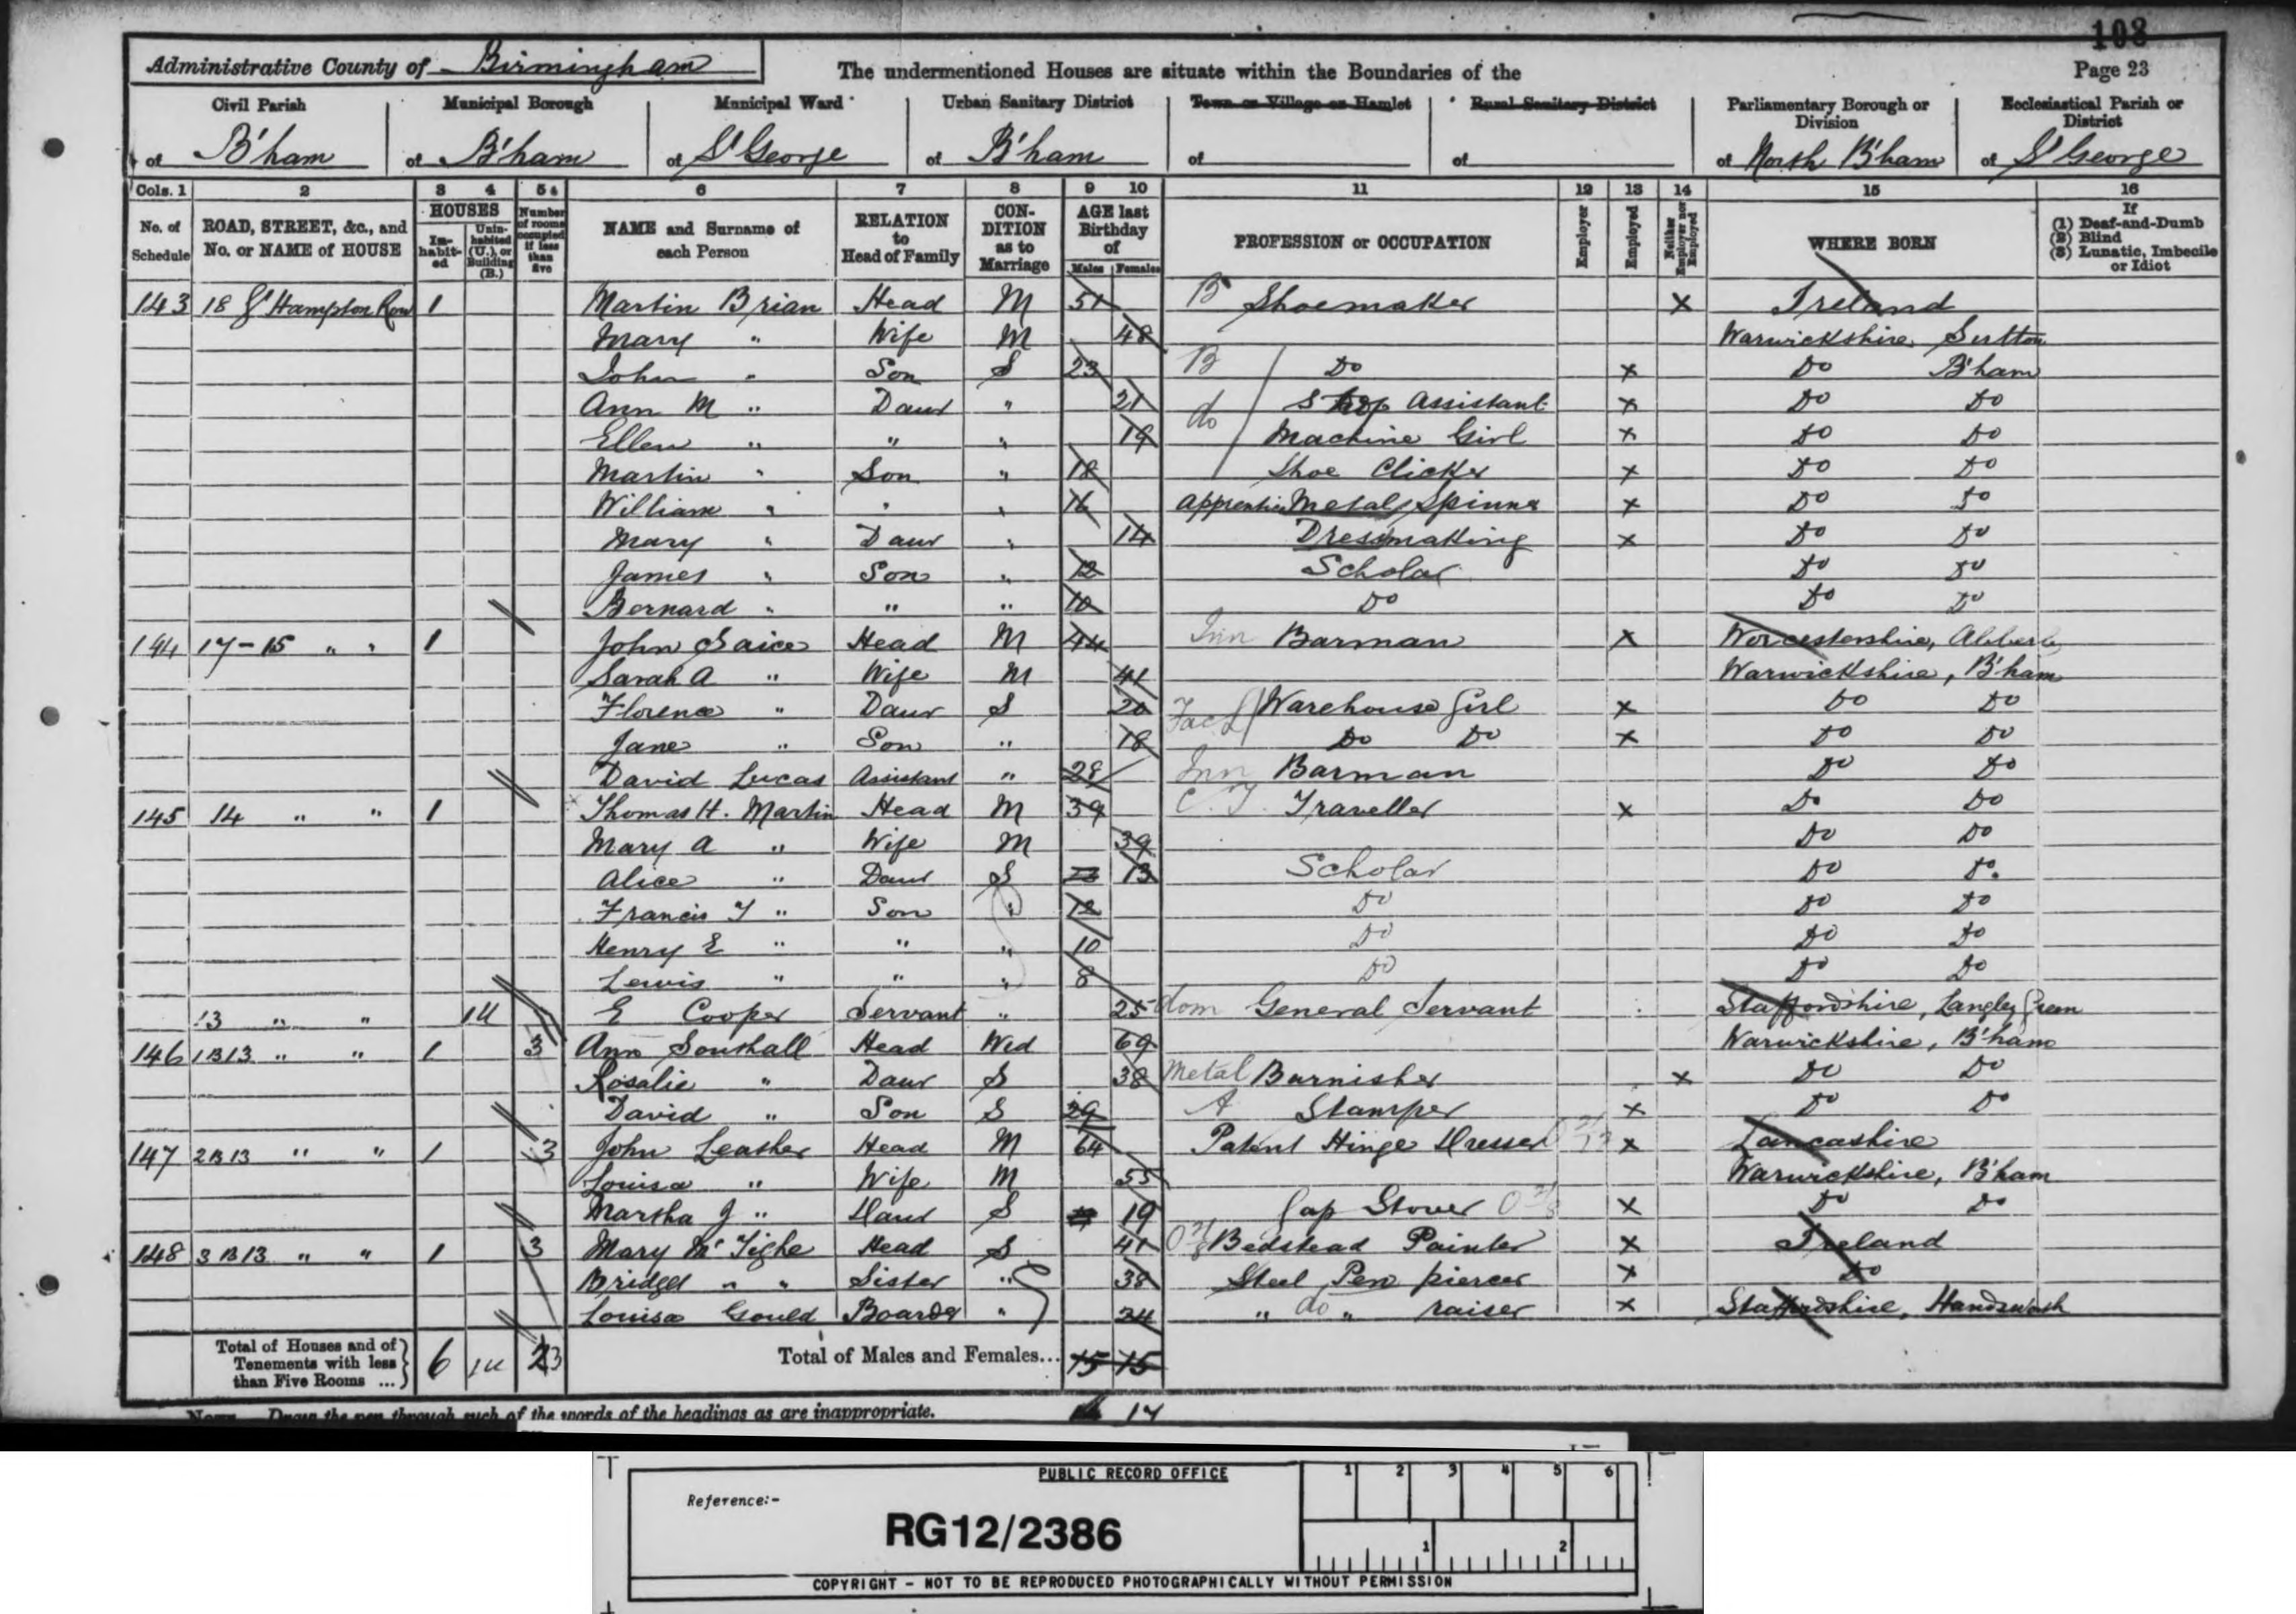 108
Page 23
Administrative County of Birmingham
The undermentioned Houses are situate within the Boundaries of the
Civil Parish Municipal Borough Municipal Ward Urban Sanitary District Town or Village or Hamlet Rural Sanitary District Parliamentary Borough or Division Ecclesiastical Parish or District
of B'ham of B'ham of St George of B'ham of of of North B'ham of St George
Cols. 1 2 3 4 5 6 7 8 9 10 11 12 13 14 15 16
No. of Schedule ROAD, STREET, &c., and No. or NAME of HOUSE HOUSES Inhabited Uninhabited (U.), or Building (B.) Number of rooms occupied if less than five NAME and Surname of each Person RELATION to Head of Family CONDITION as to Marriage AGE last Birthday of Males Females PROFESSION or OCCUPATION Employer Employed Neither Employer nor Employed WHERE BORN If (1) Deaf-and-Dumb (2) Blind (3) Lunatic, Imbecile or Idiot
143 18 Gt Hampton Row 1 Martin Brian Head M 51 B Shoemaker X Ireland
Mary " Wife M 48 Warwickshire Sutton
John " Son S 23 B Do X Do B'ham
Ann M " Daur " 21 do Shop Assistant X Do Do
Ellen " " " 19 Machine Girl X Do Do
Martin " Son " 18 Shoe Clicker X Do Do
William " " " 16 Apprentice Metal Spinner X Do Do
Mary " Daur " 14 Dressmaking X Do Do
James " Son " 12 Scholar Do Do
Bernard " " " 10 Do Do Do
144 17-15 " " 1 John Head M 44 Inn Barman X Worcestershire, Abberly
Sarah A " Wife M 41 Warwickshire, B'ham
Florence " Daur S 20 Fact Warehouse Girl X Do Do
Jane " Son " 18 Do Do X Do Do
David Lucas Assistant " 28 Inn Barman Do Do
145 14 " " 1 Thomas H. Martin Head M 39 C. T. Traveller X Do Do
Mary A " Wife M 39 Do Do
Alice " Daur S 13 13 Scholar Do Do
Francis T " Son " 12 Do Do Do
Henry E " " " 10 Do Do Do
Lewis " " " 8 Do Do Do
13 " " 1U E Cooper Servant " 25 dom General Servant Staffordshire, Langley Green
146 1B13 " " 1 3 Ann Southall Head Wid 69 Warwickshire, B'ham
Rosalie " Daur S 38 Metal Burnisher X Do Do
David " Son S 29 A Stamper X Do Do
147 2B13 " " 1 3 John Leather Head M 64 Patent Hinge Dresser X Lancashire
Louisa " Wife M 55 Warwickshire, B'ham
Martha J " Daur S 19 Cap Stover X Do Do
148 3B13 " " 1 3 Mary Mc Tighe Head S 41 Bedstead Painter X Ireland
Bridget " " Sister " 38 Steel Pen piercer X Do
Louisa Gould Boarder " 24 " do " raiser X Staffordshire, Handswoth
Total of Houses and of Tenements with less than Five Rooms ... 6 1U 3 Total of Males and Females... 15 15
17
NOTE.—Draw the pen through such of the words of the headings as are inappropriate.
PUBLIC RECORD OFFICE
1 2 3 4 5 6
Reference:-
RG12/2386
1 2
COPYRIGHT - NOT TO BE REPRODUCED PHOTOGRAPHICALLY WITHOUT PERMISSION